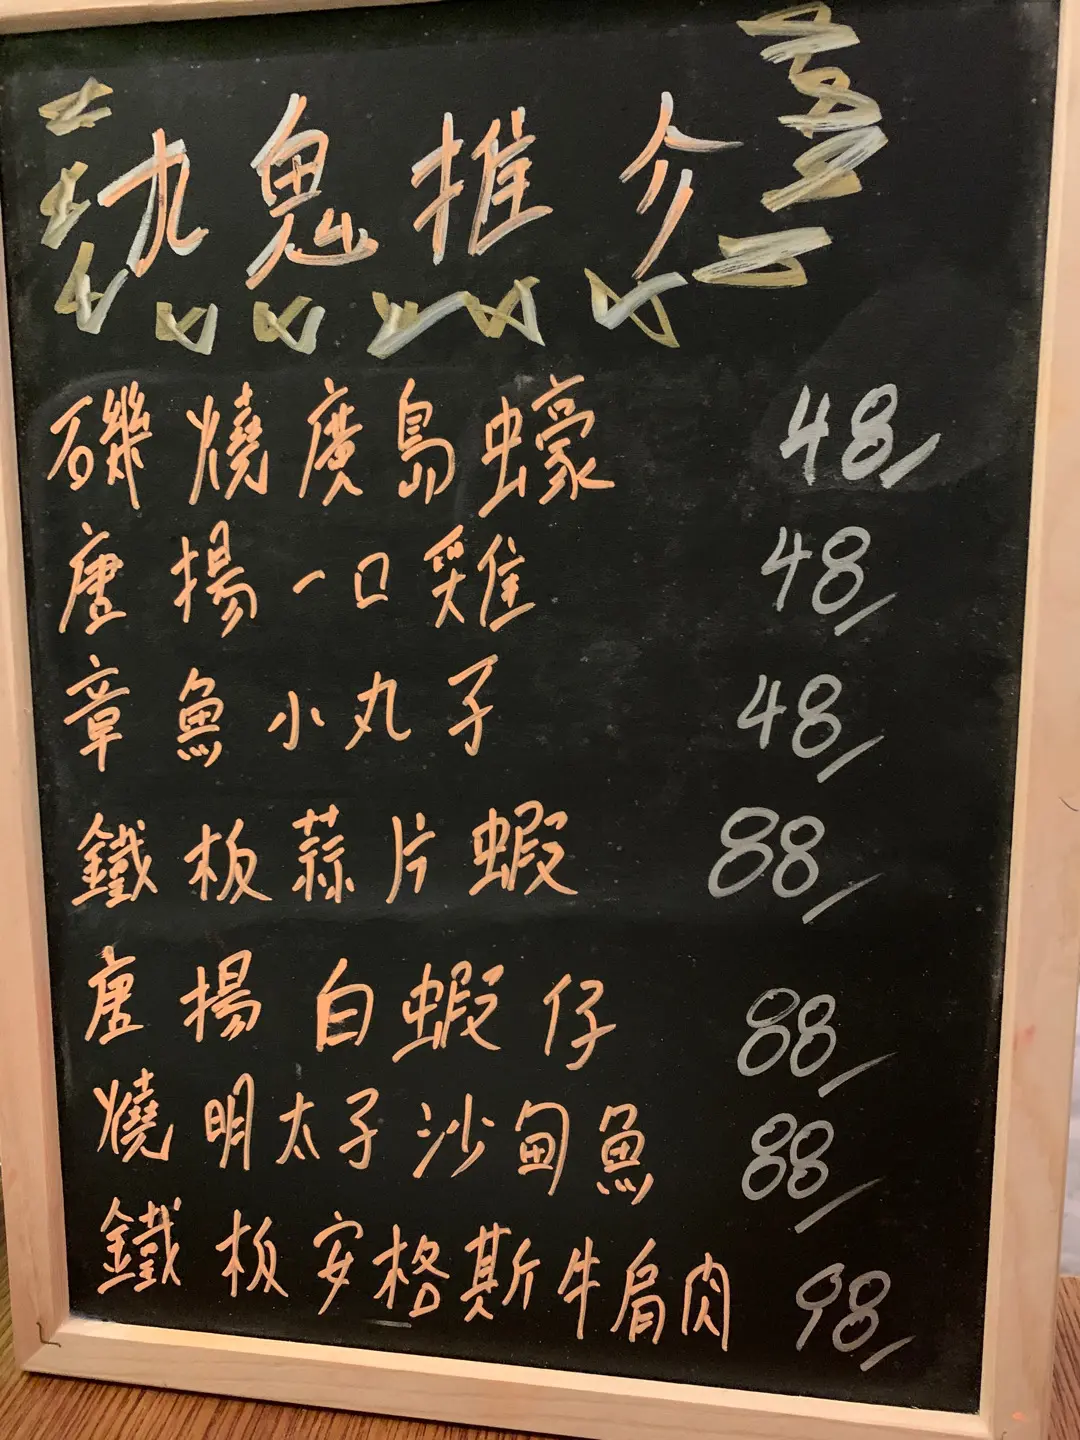 九鬼推介
磯燒廣島蠔 48/
唐揚一口雞 48/
章魚小丸子 48/
鐵板蒜片蝦 88/
唐揚白蝦仔 88/
燒明太子沙甸魚 88/
鐵板安格斯牛肩肉 98/